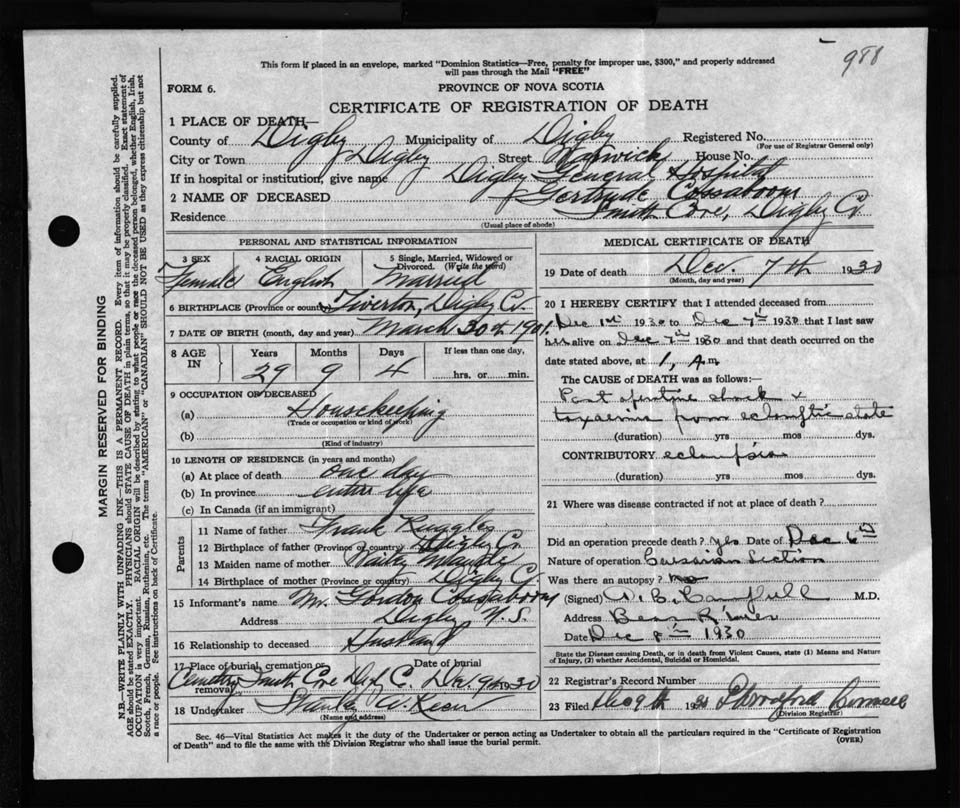 988
This form if placed in an envelope, marked "Dominion Statistics—Free, penalty for improper use, $300," and properly addressed
will pass through the Mail "FREE"
FORM 6.
PROVINCE OF NOVA SCOTIA
CERTIFICATE OF REGISTRATION OF DEATH
1 PLACE OF DEATH—
County of Digby Municipality of Digby Registered No.
(For use of Registrar General only)
City or Town Digby Street Warwick House No.
If in hospital or institution, give name Digby General Hospital
2 NAME OF DECEASED Gertrude Cossaboom
Residence Smith Cove, Digby Co.
(Usual place of abode)
PERSONAL AND STATISTICAL INFORMATION
3 SEX 4 RACIAL ORIGIN 5 Single, Married, Widowed or
Divorced. (Write the word)
Female English Married
6 BIRTHPLACE (Province or country) Tiverton, Digby Co.
7 DATE OF BIRTH (month, day and year) March 30th 1901
8 AGE IN Years Months Days If less than one day,
29 9 4 hrs. or min.
9 OCCUPATION OF DECEASED
(a) Housekeeping
(Trade or occupation or kind of work)
(b)
(Kind of industry)
10 LENGTH OF RESIDENCE (in years and months)
(a) At place of death one day
(b) In province entire life
(c) In Canada (if an immigrant)
Parents
11 Name of father Frank Ruggles
12 Birthplace of father (Province or country) Digby Co.
13 Maiden name of mother
14 Birthplace of mother (Province or country) Digby Co.
15 Informant's name Mr. Gordon Cossaboom
Address Digby N.S.
16 Relationship to deceased Husband
17 Place of burial, cremation or removal Date of burial
Cemetery Smith Cove Dec. 9th 1930
18 Undertaker
(Name and address)
MEDICAL CERTIFICATE OF DEATH
19 Date of death Dec. 7th 1930
(Month, day and year)
20 I HEREBY CERTIFY that I attended deceased from
Dec 1st 1930 to Dec 7th 1930 that I last saw
her alive on Dec 7th 1930 and that death occurred on the
date stated above, at 1, A m
The CAUSE of DEATH was as follows:—
Post operative shock &
toxaemia from eclamptic state
(duration) yrs mos dys.
CONTRIBUTORY eclampsia
(duration) yrs mos dys.
21 Where was disease contracted if not at place of death?
Did an operation precede death? Yes Date of Dec 6th
Nature of operation Cesarian Section
Was there an autopsy? no
(Signed) W. B. Campbell M.D.
Address Bear River
Date Dec 8th 1930
State the Disease causing Death, or in death from Violent Causes, state (1) Means and Nature
of Injury, (2) whether Accidental, Suicidal or Homicidal.
22 Registrar's Record Number
23 Filed Dec 9th
(Division Registrar)
Sec. 46—Vital Statistics Act makes it the duty of the Undertaker or person acting as Undertaker to obtain all the particulars required in the "Certificate of Registration
of Death" and to file the same with the Division Registrar who shall issue the burial permit.
(OVER)
MARGIN RESERVED FOR BINDING
N.B.—WRITE PLAINLY WITH UNFADING INK—THIS IS A PERMANENT RECORD. Every item of information should be carefully supplied.
AGE should be stated EXACTLY. PHYSICIANS should STATE CAUSE OF DEATH in plain terms, so that it may be properly classified. Exact statement of
OCCUPATION is very important. RACIAL ORIGIN will be described by stating to what people or race the deceased person belonged, whether English, Irish,
Scotch, French, German, Russian, Ruthenian, etc. The terms "AMERICAN" or "CANADIAN" SHOULD NOT BE USED as they express citizenship but not
a race or people. Fee instructions on back of Certificate.